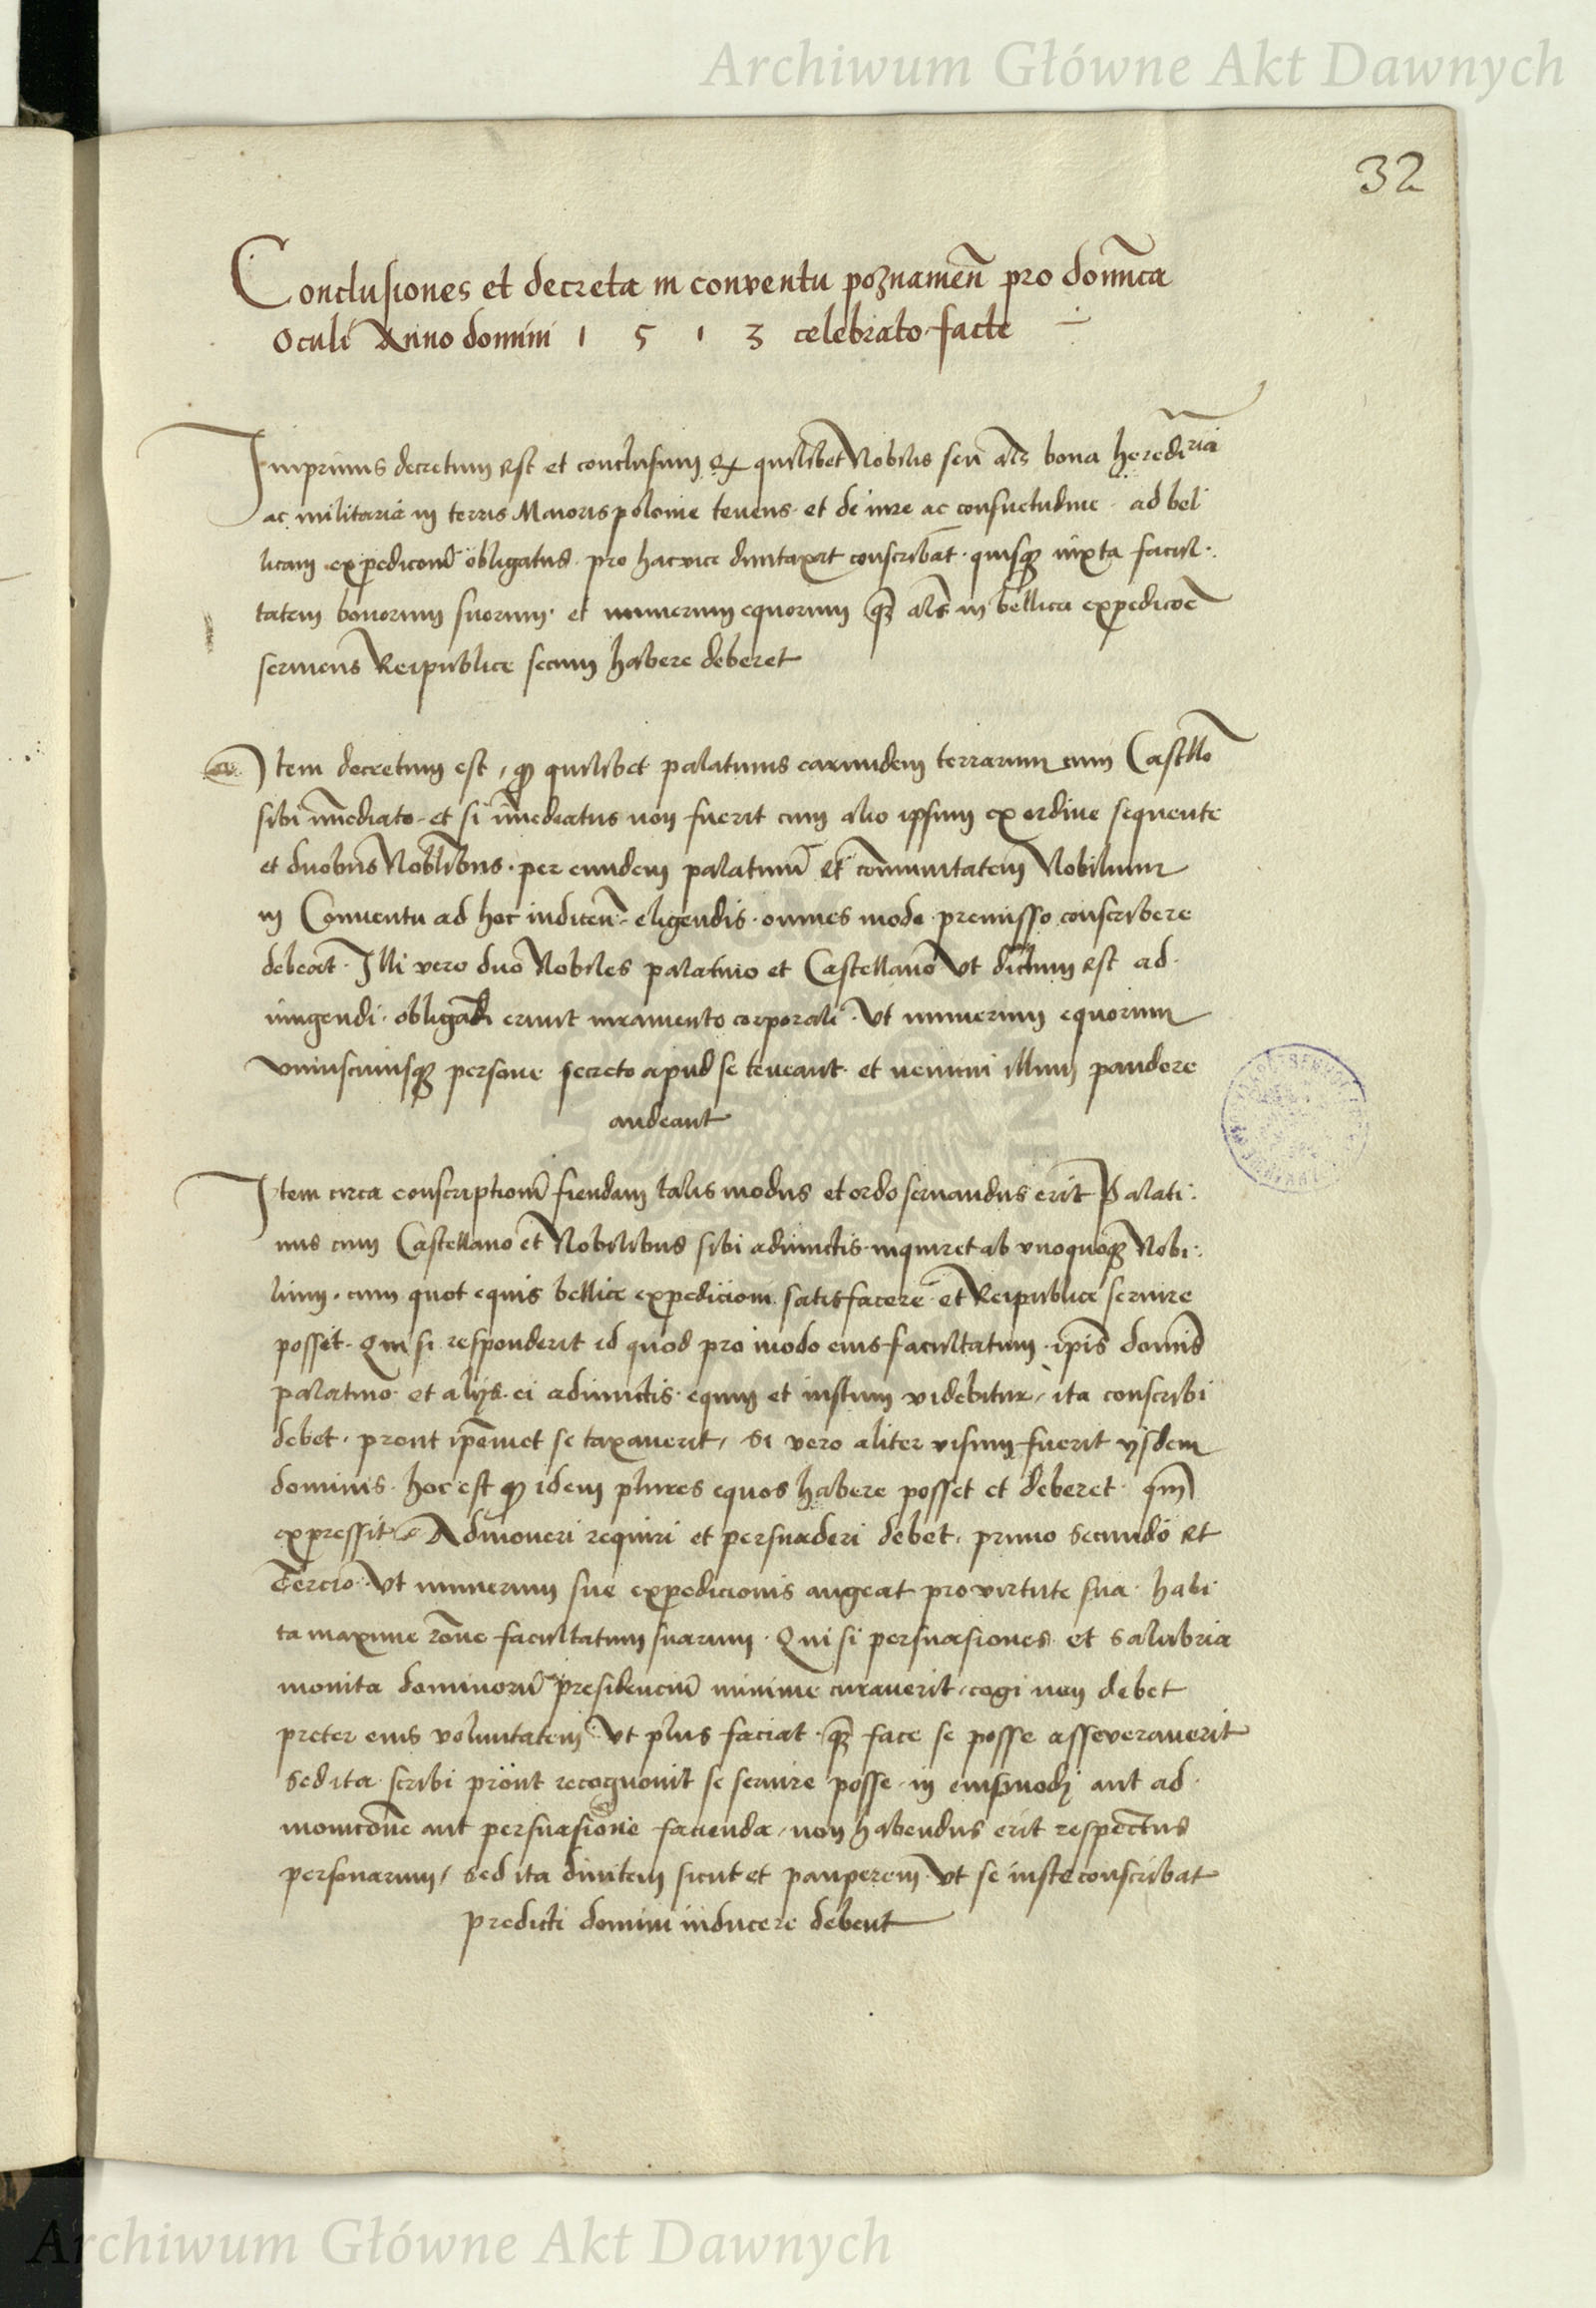 Archiwum Główne Akt Dawnych
32
Conclusiones et decreta in conventu poznanien̄ pro dom̄ca
Oculi Anno domini 1 5 1 3 celebrato facte
Inprimis decretum est et conclusum qꝫ quilibet Nobilis seu al̄s bona herediria
ac militaria in terris Maioris polonie tenens et de iure ac consuetudine ad bel
licam expedicionē obligatus pro hac vice duntaxat conscribat quisqꝫ iuxta facul
tatem bonorum suorum et numerum equorum quē al̄s in bellica expedicōe
seruiens Reipublice secum habere deberet
Item decretum est, qꝫ quilibet palatinus earundem terrarum cum Castll̄o
sibi īmediato et si īmediatus non fuerit cum alio ipsum ex ordine sequente
et duobus Noblibus per eundem palatinū et com̄unitatem Nobilium
in Conuentu ad hoc indicen̄ eligendis omnes modo premisso conscribere
debeat Illi vero duo Nobiles palatino et Castellano vt dictum est ad
iungendi obligādi erunt iuramento corporali vt numerum equorum
vniuscuiusqꝫ persone secreto apud se teneant et nemini illum pandere
audeant
Item circa conscriptionē fiendam talis modus et ordo seruandus erit Palati
nus cum Castellano et Nobilibus sibi adiunctis inquiret ab vnoquoqꝫ Nobi
lium cum quot equis bellice expedicioni satisfacere et Reipublice seruire
posset Qui si responderit id quod pro modo eius facultatum ip̄is domīs
palatino et alijs ei adiunctis equum et iustum videbitur, ita conscribi
debet prout ip̄emet se taxauerit, Si vero aliter visum fuerit ijsdem
dominis hoc est qꝫ idem plures equos habere posset et deberet qm̄
expressit Admoneri requiri et persuaderi debet primo secundo et
Tercio vt numerum sue expedicionis augeat pro virtute sua habi
ta maxime rōne facultatum suarum Qui si persuasiones et salubria
monita dominorū presidenciū minime curauerit, cogi non debet
preter eius voluntatem vt plus faciat quā face se posse asseverauerit
Sed ita scribi prout recognouit se seruire posse in eiusmodi aut ad
monicōne aut persuasione facienda, non habendus erit respectus
personarum, sed ita diuitem sicut et pauperem vt se iuste conscribat
predicti domini inducere debent
Archiwum Główne Akt Dawnych